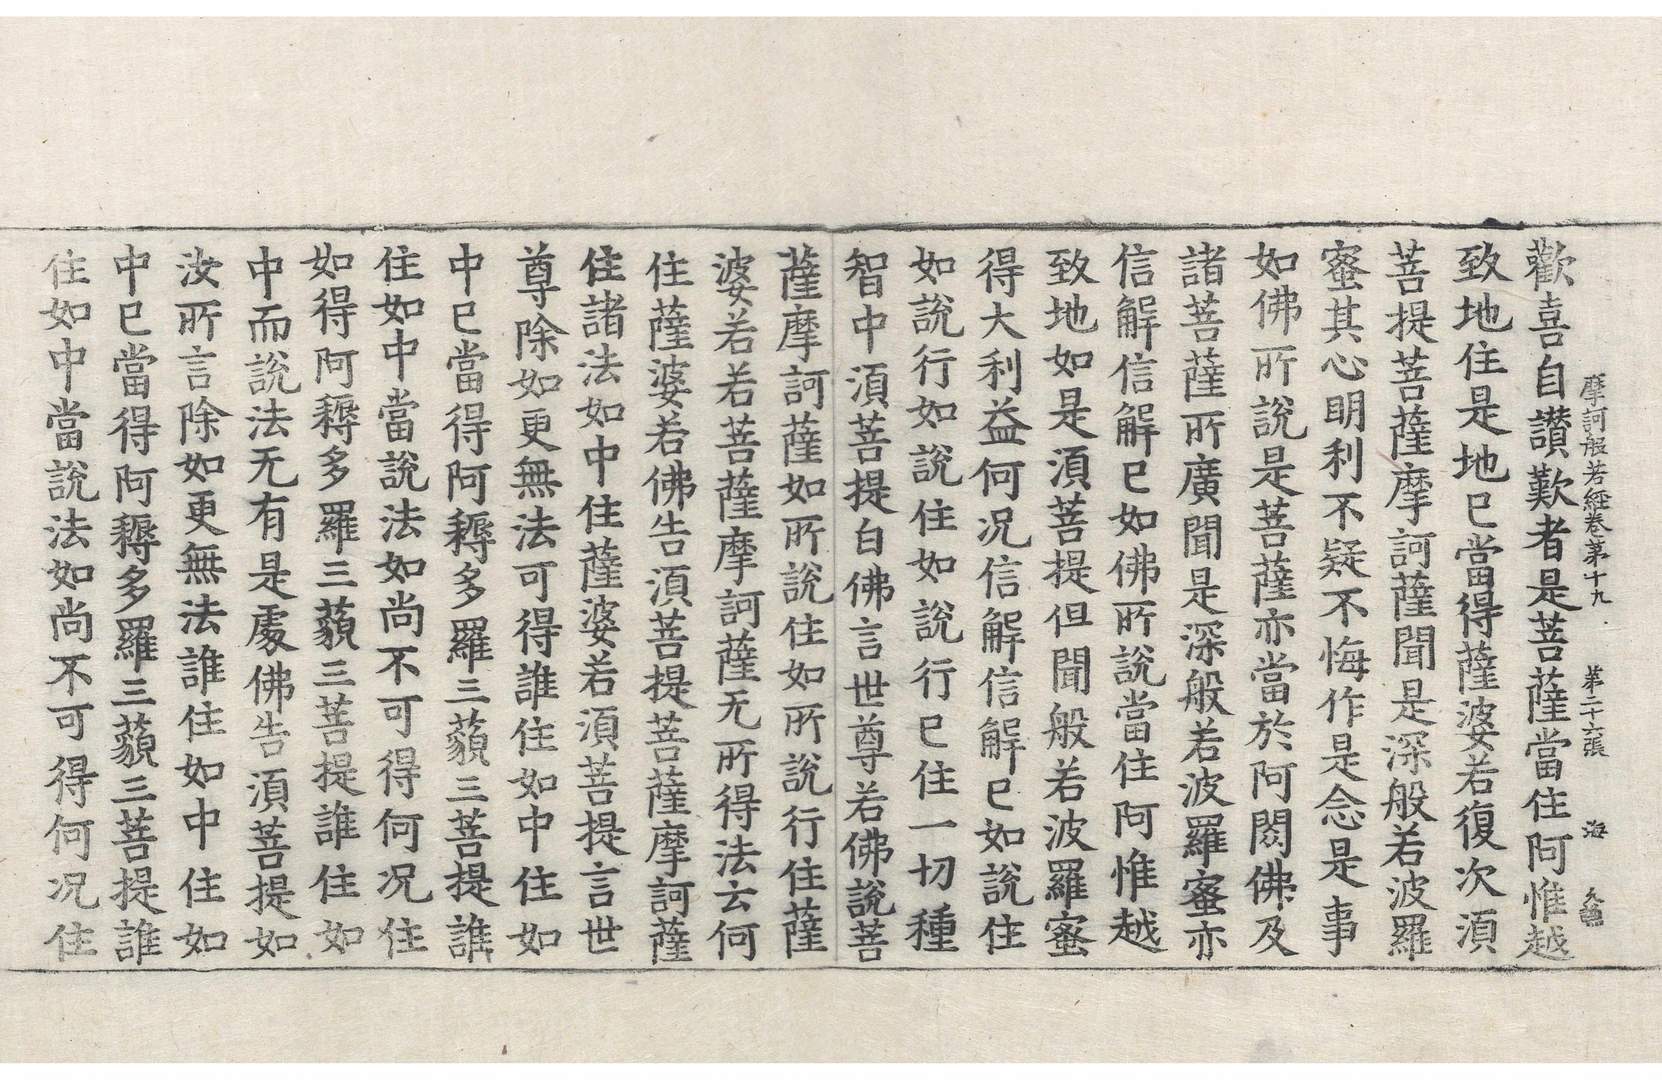 摩訶般若經卷第十九 第二十六張 海
歡喜自讃歎者是菩薩當住阿惟越
致地住是地已當得薩婆若復次湏
菩提菩薩摩訶薩聞是深般若波羅
蜜其心明利不疑不悔作是念是事
如佛所說是菩薩亦當於阿閦佛及
諸菩薩所廣聞是深般若波羅蜜亦
信解信解已如佛所說當住阿惟越
致地如是湏菩提但聞般若波羅蜜
得大利益何况信解信解已如說住
如說行如說住如說行已住一切種
智中湏菩提白佛言世尊若佛說菩
薩摩訶薩如所說住如所說行住薩
婆若若菩薩摩訶薩无所得法云何
住薩婆若佛告湏菩提菩薩摩訶薩
住諸法如中住薩婆若湏菩提言世
尊除如更無法可得誰住如中住如
中已當得阿耨多羅三藐三菩提誰
住如中當說法如尚不可得何况住
如得阿耨多羅三藐三菩提誰住如
中而說法无有是處佛告湏菩提如
汝所言除如更無法誰住如中住如
中已當得阿耨多羅三藐三菩提誰
住如中當說法如尚不可得何况住